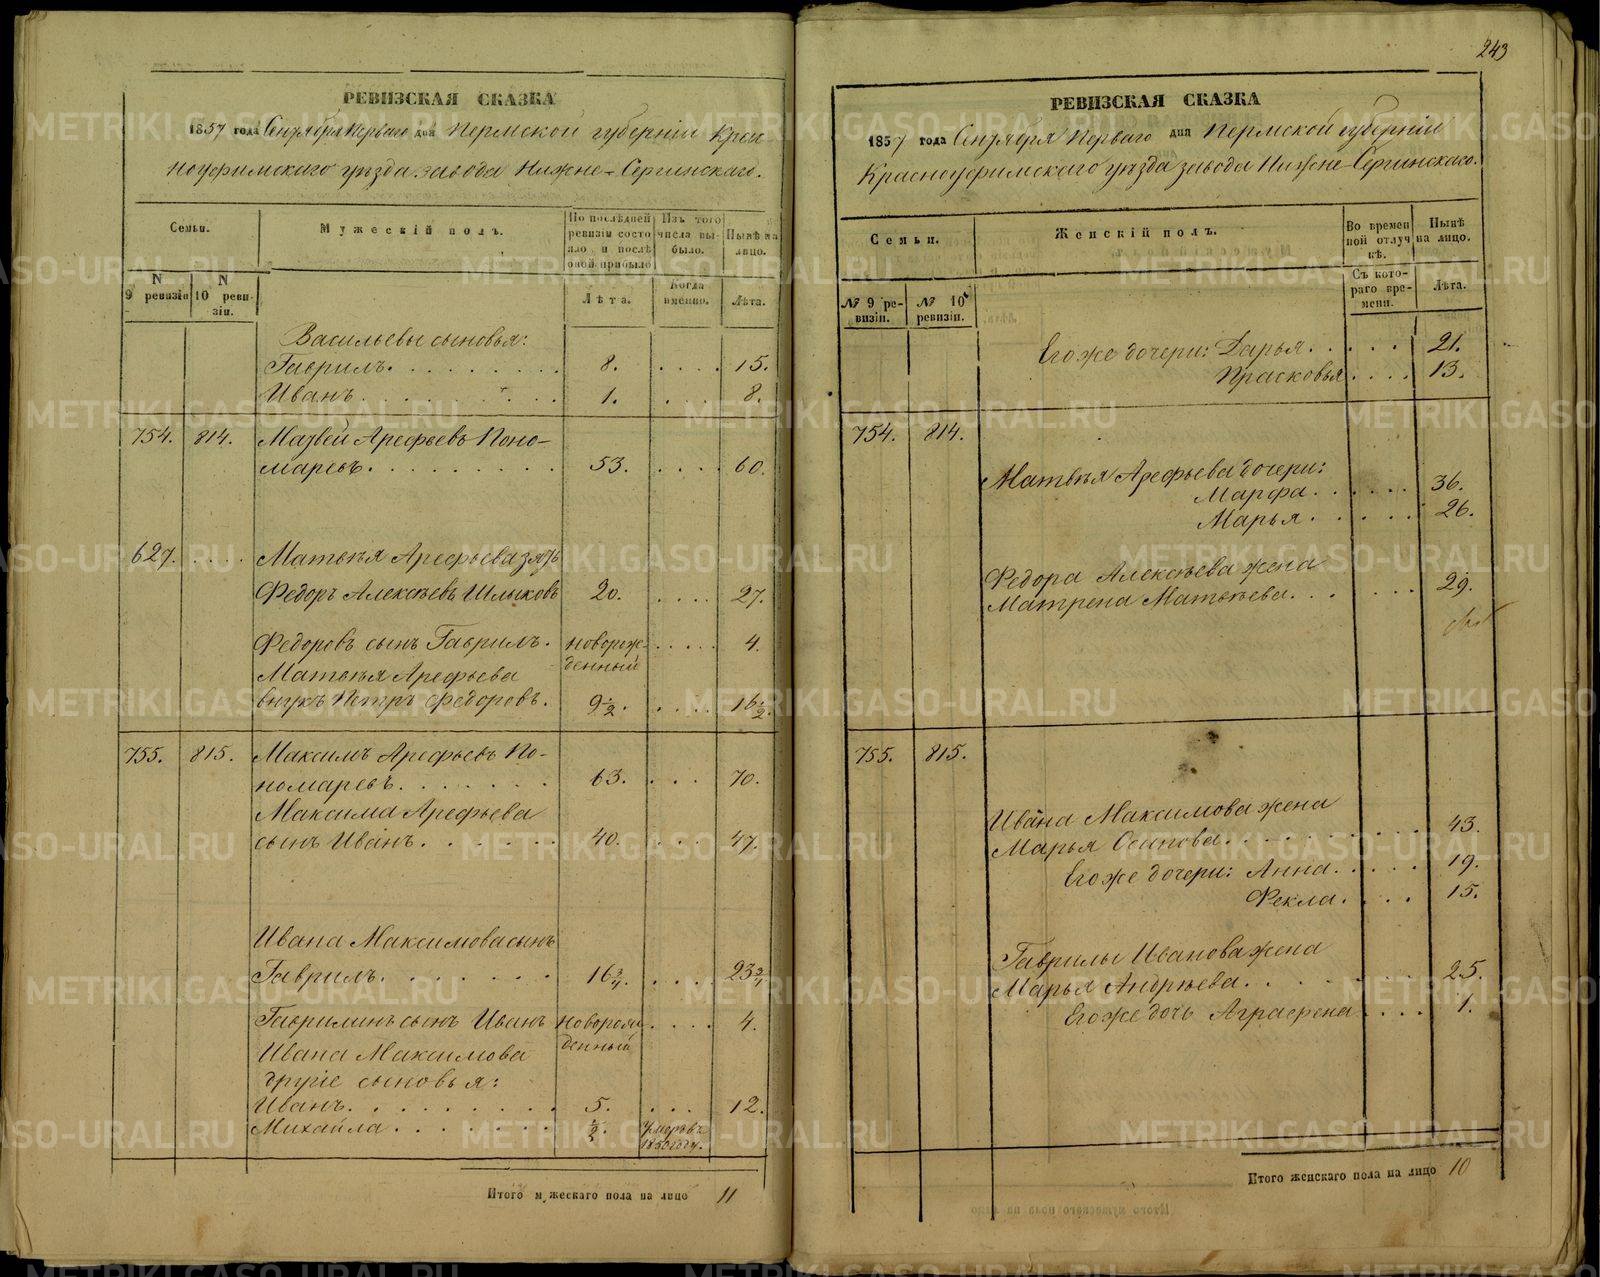 РЕВИЗСКАЯ СКАЗКА
1857 года Сентября Перваго дня Пермской губернiи Крас
ноуфимскаго уѣзда завода Нижне-Сергинскаго.
Семьи.
Мужескiй полъ.
По послѣдней ревизiи состояло и послѣ оной прибыло
Изъ того числа выбыло.
Нынѣ на лицо.
N 9 ревизiи
N 10 ревизiи.
Лѣта.
Когда именно.
Лѣта.
Васильевы сыновья:
Гаврилъ. 8. 15.
Иванъ 1. 8.
754. 814. Матвей Арефьевъ Поно-
маревъ. 53. 60.
627. Матвѣя Арефьева зять
Федоръ Алексѣевъ Шлыковъ 20. 27.
Федоровъ сынъ Гаврилъ. новорож-
денный 4.
Матвѣя Арефьева
внукъ Петръ Федоровъ. 9 1/2. 16 1/2.
755. 815. Максимъ Арефьевъ По-
номаревъ. 63. 70.
Максима Арефьева
сынъ Иванъ. 40. 47.
Ивана Максимова сынъ
Гаврилъ. 16 3/4. 23 3/4
Гавриловъ сынъ Иванъ новорож
денный 4.
Ивана Максимова
другiе сыновья:
Иванъ. 5. 12.
Михайла 1/2. умеръ въ
1850 году.
Итого мужескаго пола на лицо 11
243
РЕВИЗСКАЯ СКАЗКА
1857 года Сентября Перваго дня Пермской губернiи
Красноуфимскаго уѣзда завода Нижне-Сергинскаго.
Семьи.
Женскiй полъ.
Во временной отлучкѣ.
Нынѣ на лицо.
№ 9 ревизiи.
№ 10 ревизiи.
Съ котораго времени.
Лѣта.
Его же дочери: Дарья. 21.
Прасковья 13.
754. 814.
Матвѣя Арефьева дочери:
Марфа. 36.
Марья. 26.
Федора Алексѣева жена
Матрена Матвѣева. 29.
755. 815.
Ивана Максимова жена
Марья Осипова. 43.
Его же дочери: Анна. 19.
Фекла. 15.
Гаврилы Иванова жена
Марья Андрѣева. 25.
Его же дочь Аграфена 1.
Итого женскаго пола на лицо 10
METRIKI.GASO-URAL.RU